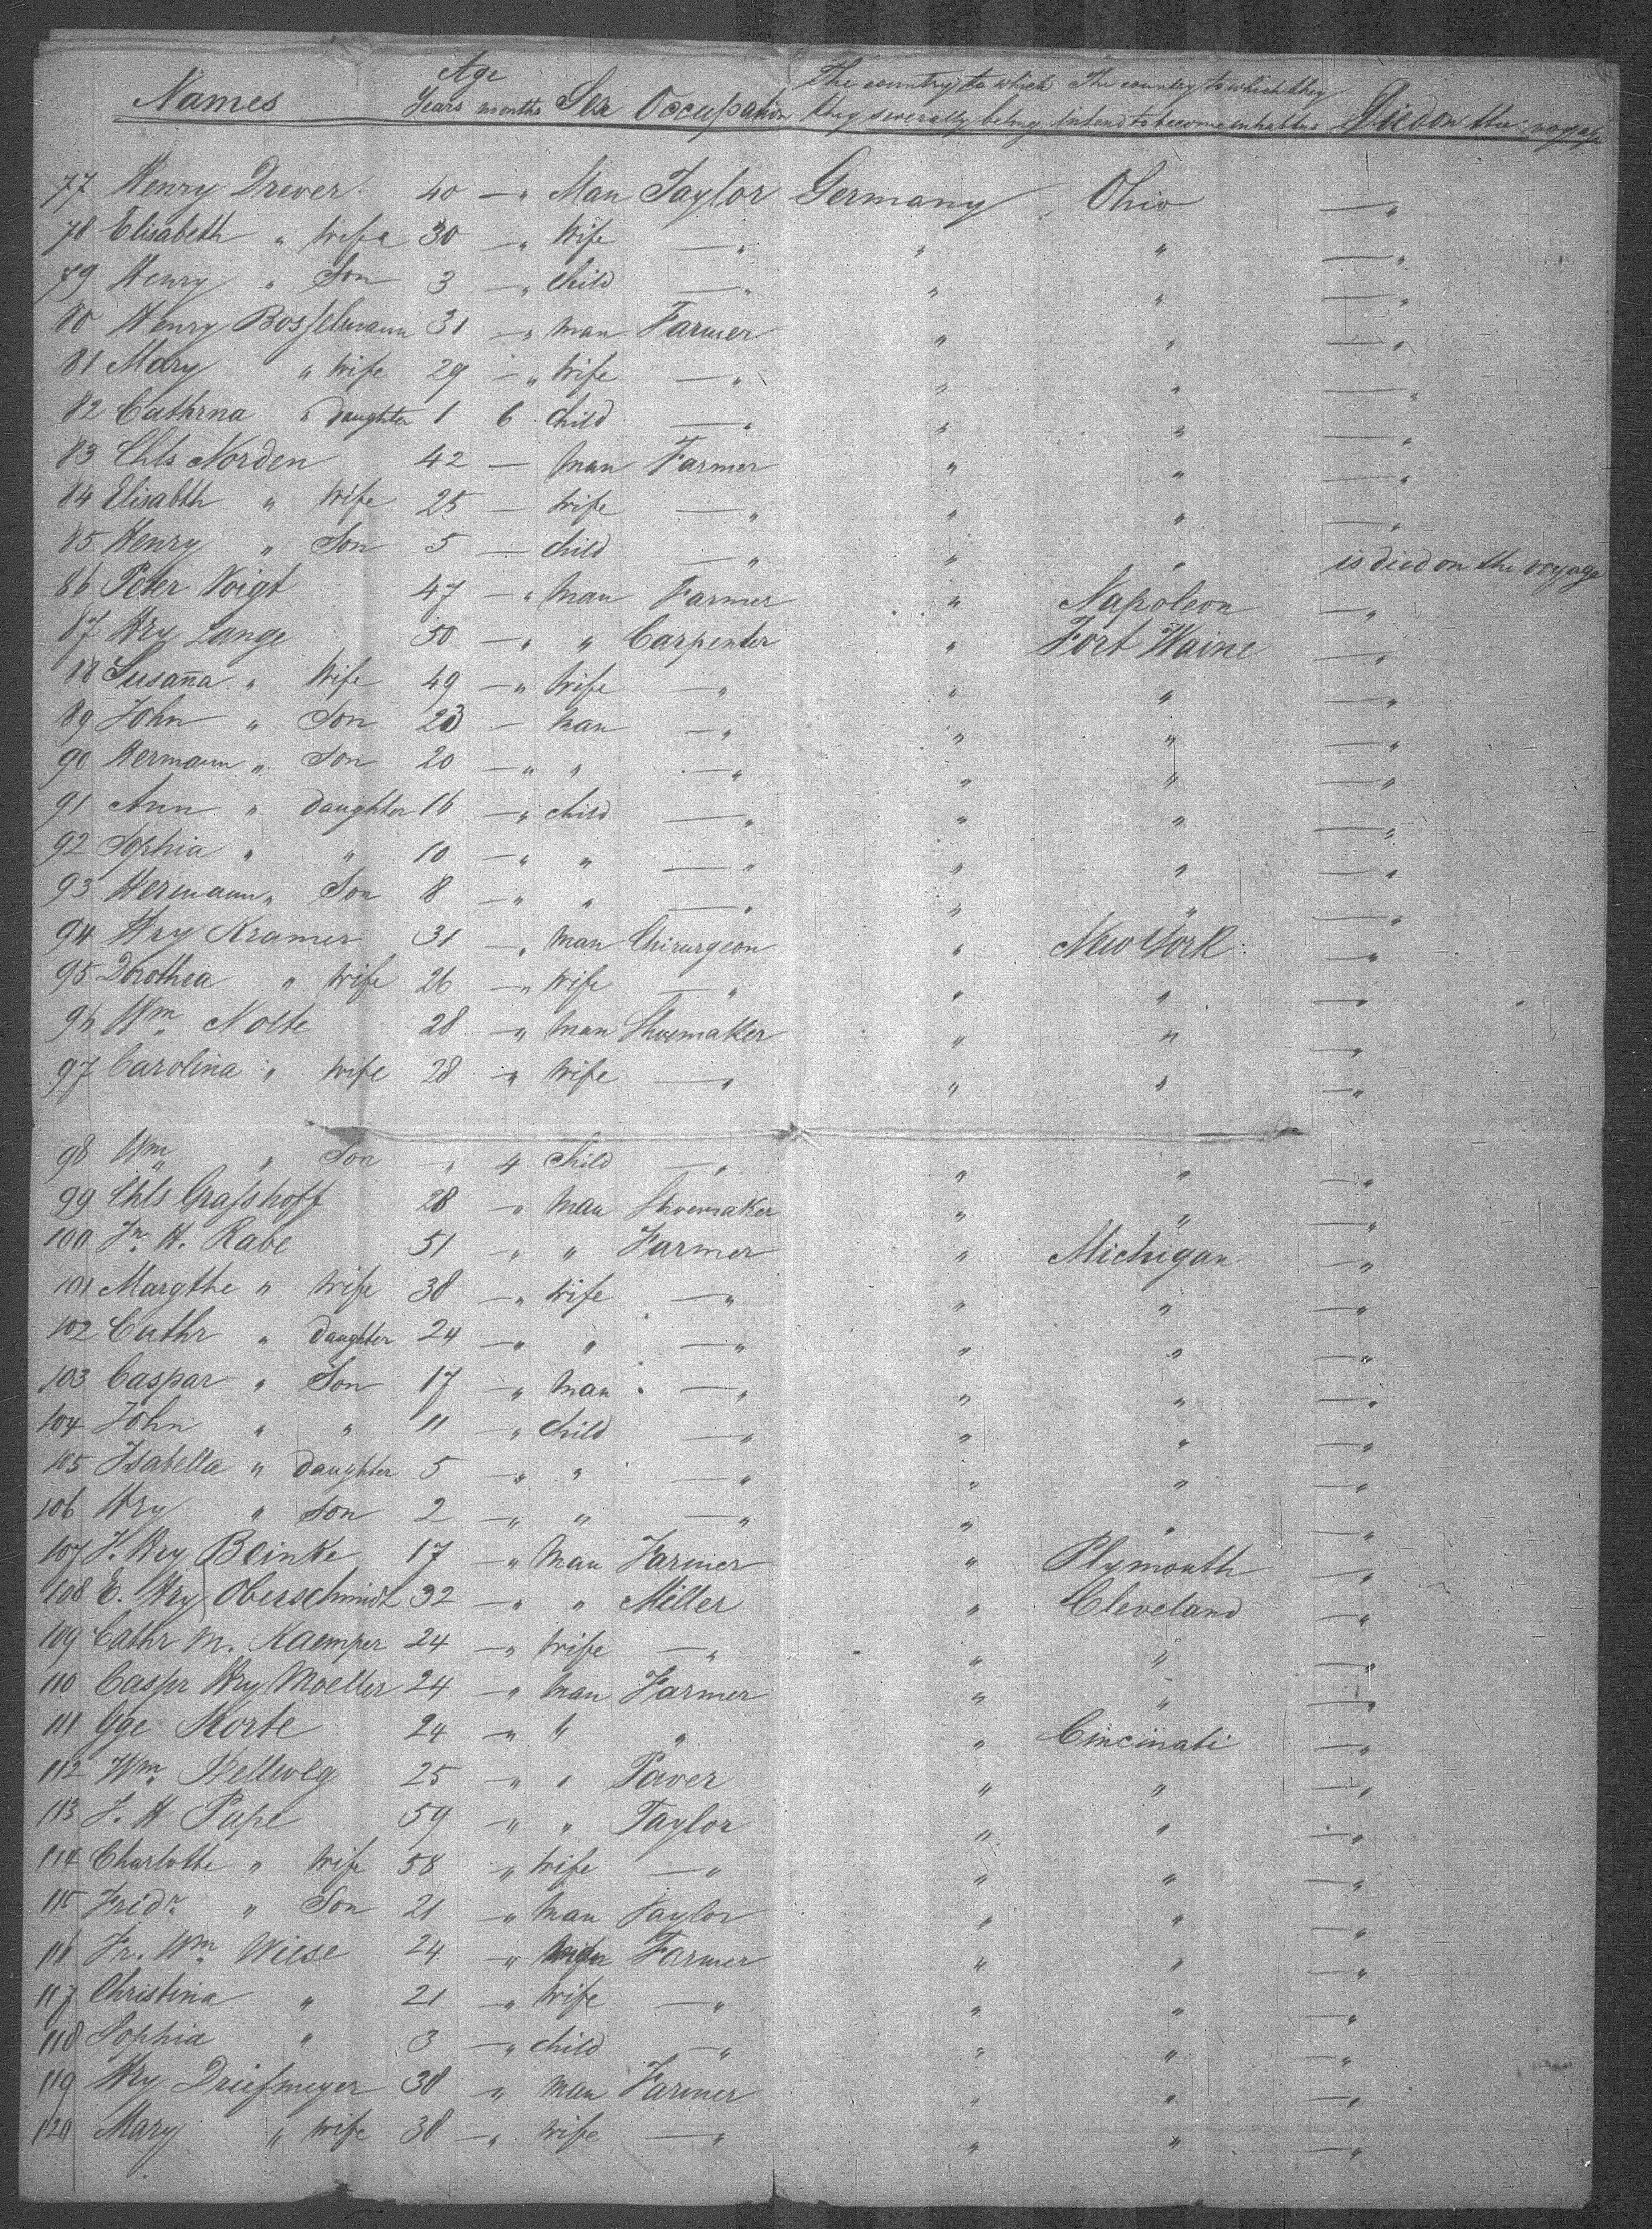 Names Age Years months Sex Occupation The country to which they severally belong The country to which they intend to become inhabitans Died on the voyage
77 Henry Drever 40 —" Man Taylor Germany Ohio —"
78 Elisabeth " Wife 30 —" Wife —" " " —"
79 Henry " Son 3 —" Child —" " " —"
80 Henry Bosselmann 31 —" Man Farmer " " —"
81 Mary " Wife 29 —" Wife —" " " —"
82 Cathrna " Daughter 1 6 Child —" " " —"
83 Chls Norden 42 — Man Farmer " " —"
84 Elisabth " Wife 25 — Wife —" " " —"
85 Henry " Son 5 — Child —" " " is died on the voyage
86 Peter Voigt 47 —" Man Farmer " Napoleon —"
87 Hry Lange 50 —" " Carpenter " Fort Waine —"
88 Susana " Wife 49 —" Wife —" " " —"
89 John " Son 23 — Man —" " " —"
90 Hermann " Son 20 —" " —" " " —"
91 Ann " Daughter 16 —" Child —" " " —"
92 Sophia " " 10 —" " —" " " —"
93 Hermann " Son 8 —" " —" " " —"
94 Hry Kramer 31 —" Man Chirurgeon " New York —"
95 Dorothea " Wife 26 —" Wife —" " " —"
96 Wm Nolte 28 —" Man Shoemaker " " —"
97 Carolina " Wife 28 —" Wife —" " " —"
98 Wm " Son —" 4 Child —" " " —"
99 Chls Grasshoff 28 —" Man Shoemaker " " —"
100 Jn. H. Rabe 51 —" " Farmer " Michigan —"
101 Margthe " Wife 38 —" Wife —" " " —"
102 Cathr " Daughter 24 —" " —" " " —"
103 Caspar " Son 17 —" Man —" " " —"
104 John " " 11 —" Child —" " " —"
105 Isabella " Daughter 5 —" " —" " " —"
106 Hry " Son 2 —" " —" " " —"
107 J. Hry Beinke 17 —" Man Farmer " Plymouth —"
108 E. Hry Oberschmidt 32 —" " Miller " Cleveland —"
109 Cathr M. Kaemper 24 —" Wife —" " " —"
110 Caspr Hry Moeller 24 —" Man Farmer " " —"
111 Gge Korte 24 —" " " " Cincinati —"
112 Wm Hellweg 25 —" " Paver " " —"
113 J. H Pape 59 —" " Taylor " " —"
114 Charlotte " Wife 58 —" Wife —" " " —"
115 Fridr " Son 21 —" Man Taylor " " —"
116 Fr. Wm Wiese 24 —" Farmer " " —"
117 Christina " 21 —" Wife —" " " —"
118 Sophia " 3 —" Child —" " " —"
119 Hry Driefmeyer 38 —" Man Farmer " " —"
120 Mary " Wife 38 —" Wife —" " " —"